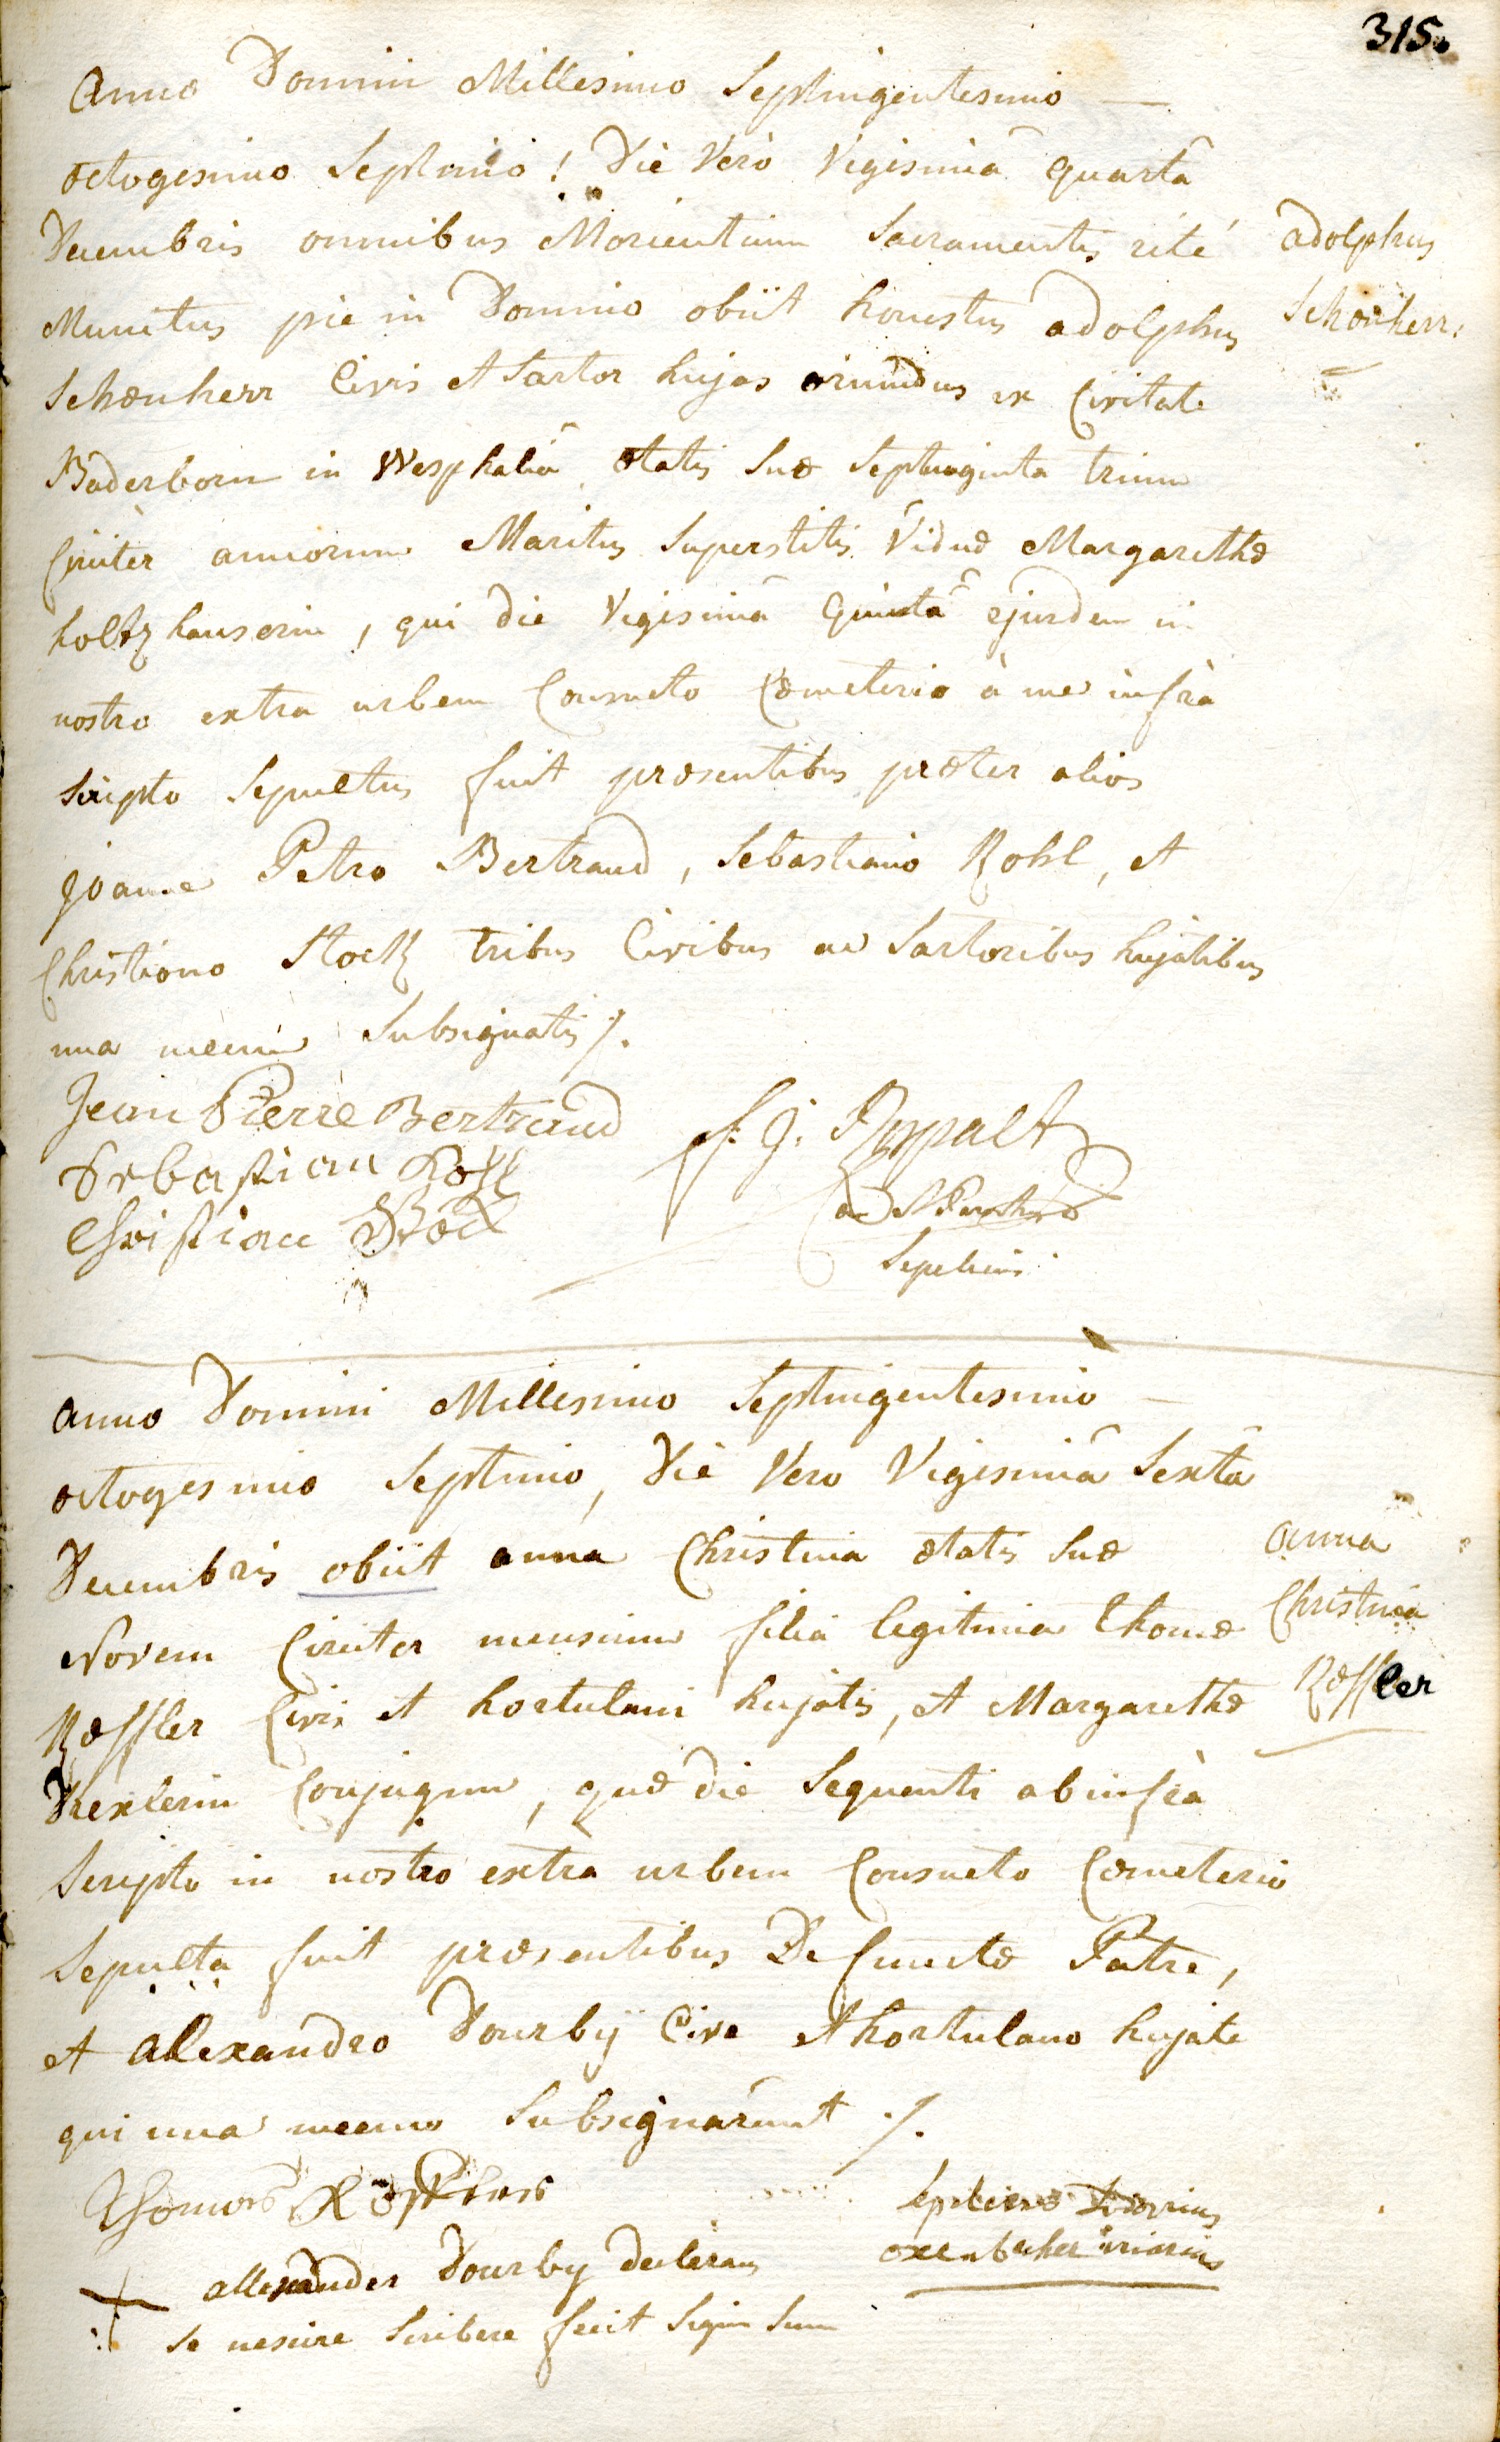 315.
Anno Domini Millesimo Septingentesimo —
octogesimo Septimo! Die Vero Vigesimâ quartâ
Decembris omnibus Morientium Sacramentis rité
Munitus pie in Domino obiit honestus adolphus
Schœnherr Civis et Sartor hujas oriundus ex Civitate
Baderborn in Wesphaliâ ætatis suæ Septuaginta trium
Circiter annorum Maritus Superstitis Viduæ Margarethæ
holtzhauserin, qui die Vigesimâ quintâ ejusdem in
nostro extra urbem Consueto Cœmeterio à me infrà
scripto Sepultus fuit præsentibus præter alios
joanne Petro Bertrand, Sebastiano Kohl, et
Christiano Stock tribus Civibus ac Sartoribus hujatibus
una mecum Subsignatis ./.
adolphus
Schœnherr.
Jean Pierre Bertrand
Sebastian Koll
Christian Stock
ad St
Sepeliens
anno Domini Millesimo Septingentesimo —
octogesimo Septimo, Die Vero Vigesimâ Sextâ
Decembris obiit anna Christina ætatis suæ
Novem Circiter mensium filia legitima thomæ
Kœffler Civis et hortulani hujatis, et Margarethæ
Kexlerin Conjugum, quæ die Sequenti ab infrà
Scripto in nostro extra urbem Consueto Cœmeterio
Sepulta fuit præsentibus Defunctæ Patre,
et alexandro Dourby Cive et hortulano hujate
qui una mecum Subsignârunt ./.
anna
Christina
Kœffler
Thomas
allexander Dourby declarans
se nescire scribere fecit signum suum